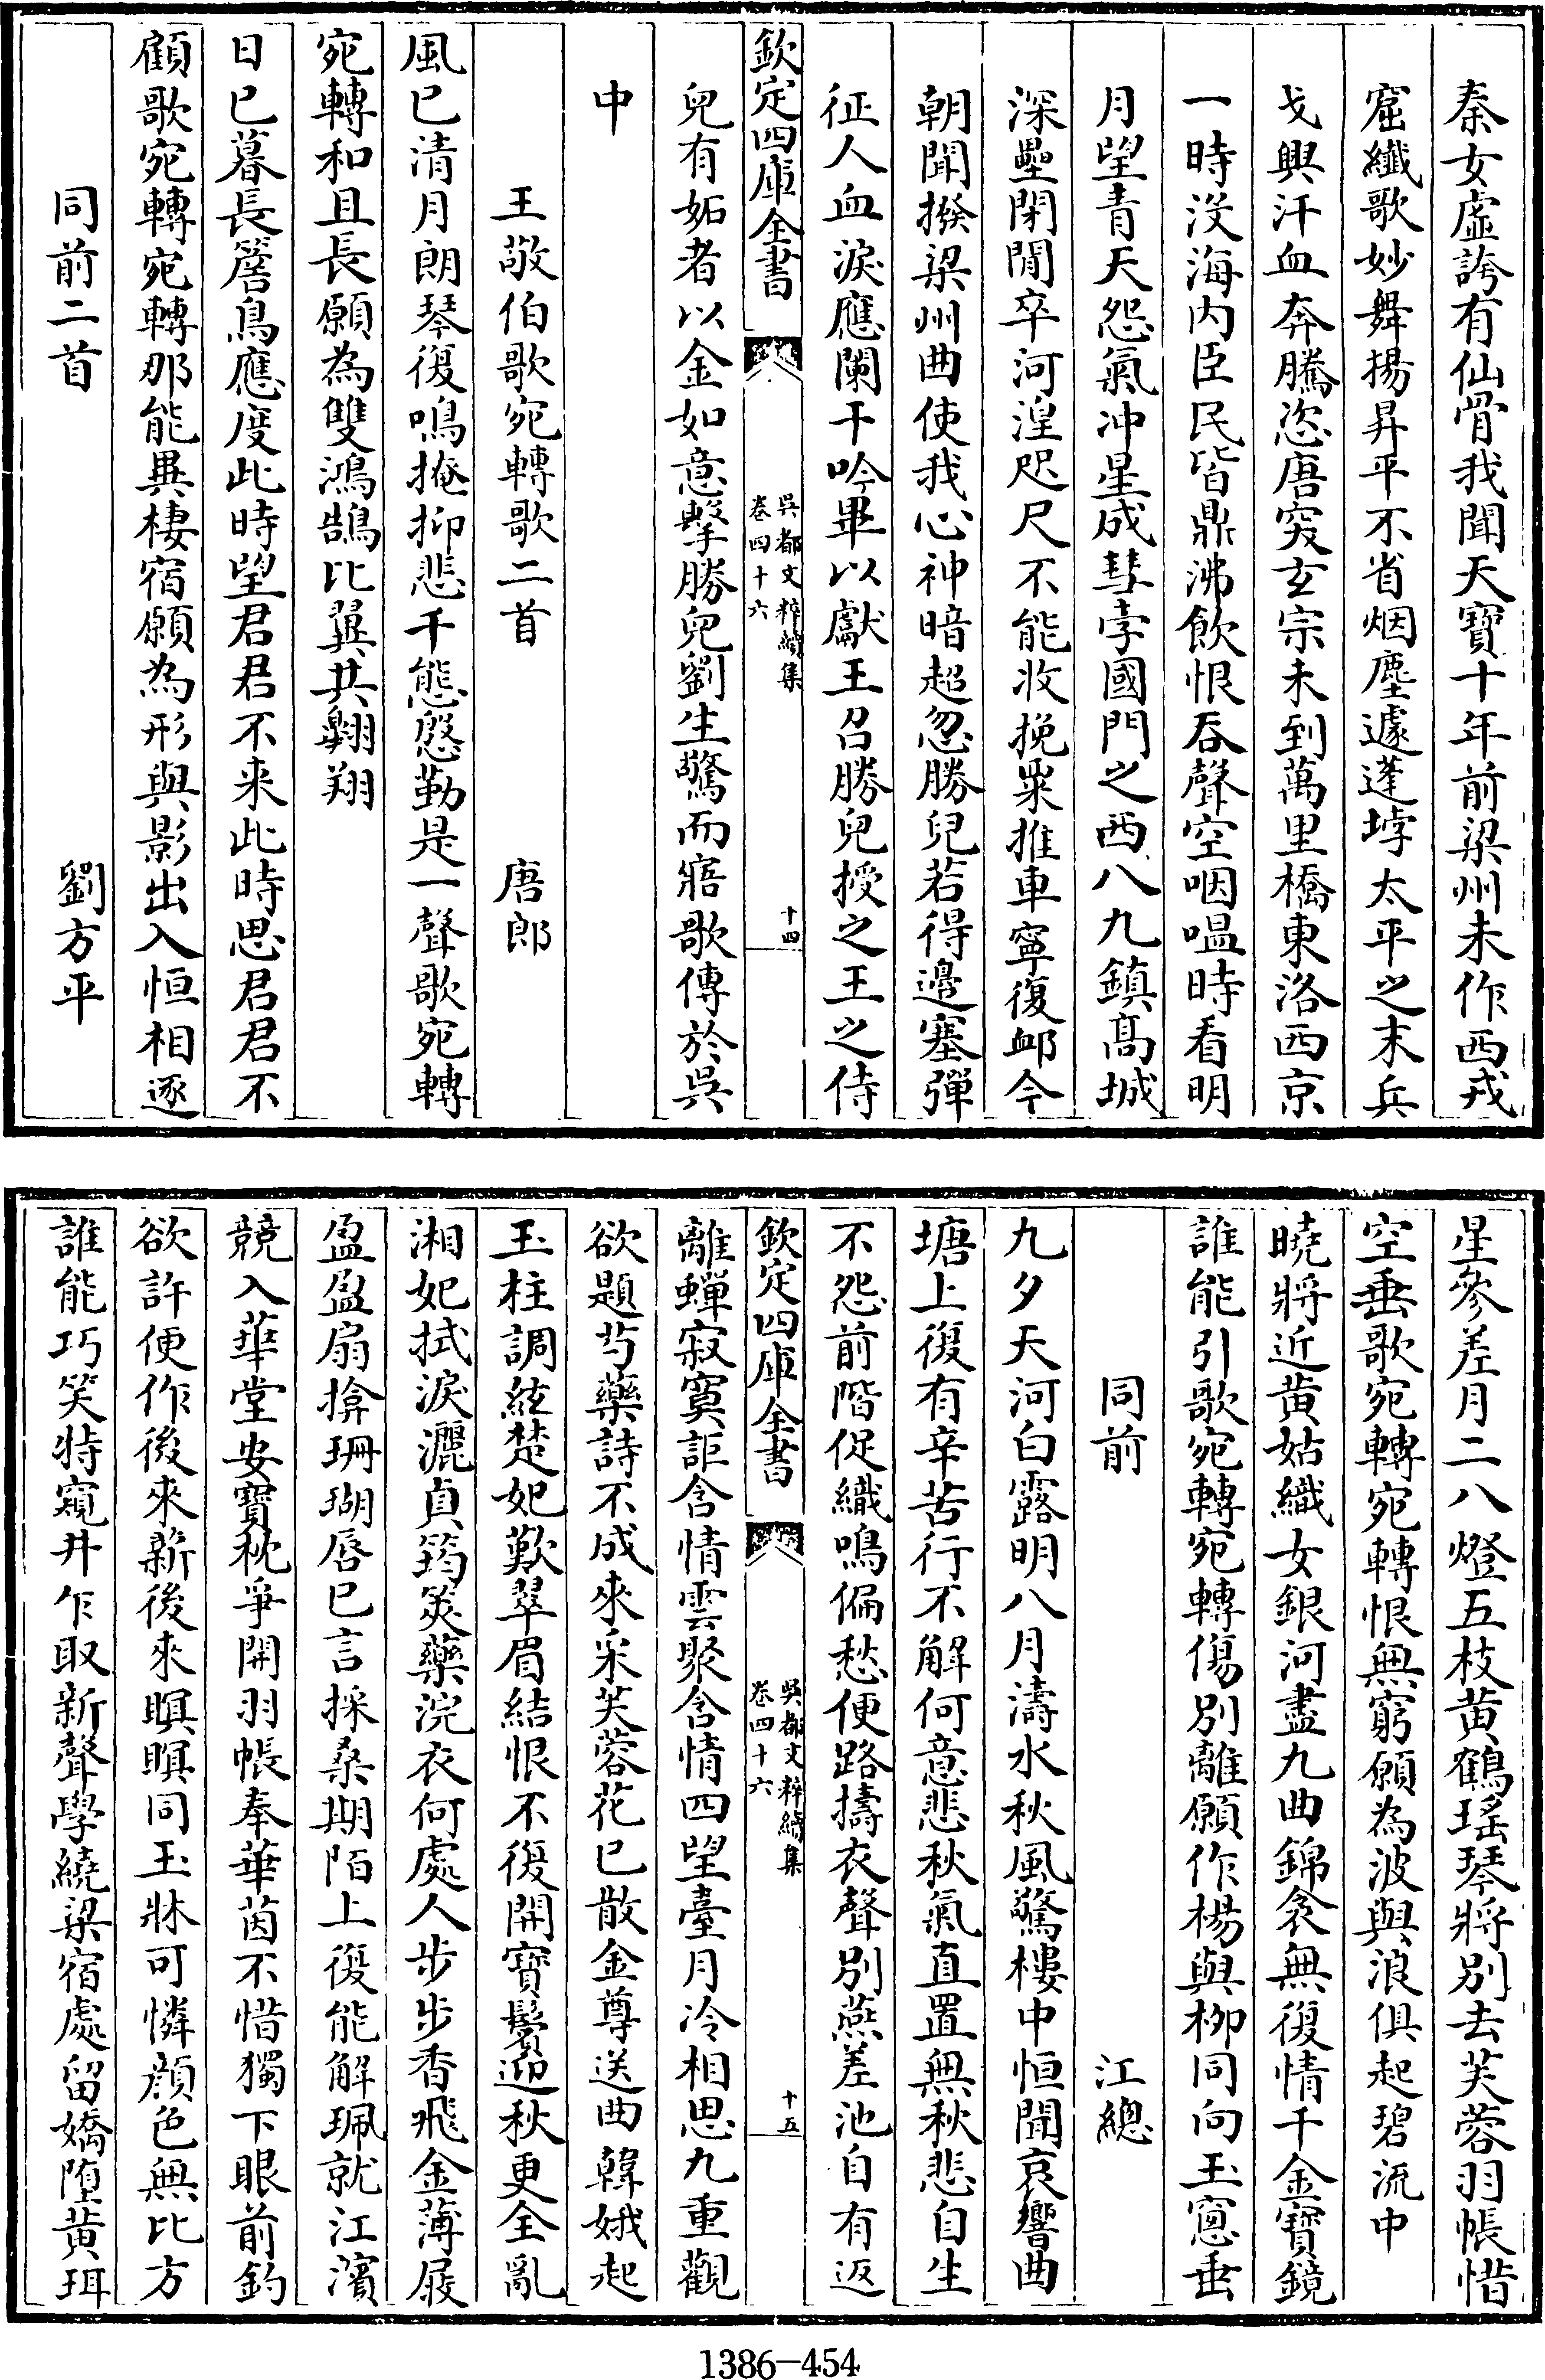 秦女虛誇有仙骨我聞天寶十年前梁州未作西戎
窟纖歌妙舞揚昇平不省烟塵遽蓬埻太平之末兵
戈興汗血奔騰恣唐突玄宗未到萬里橋東洛西京
一時沒海内臣民皆鼎沸飲恨吞聲空咽嗢時看明
月望青天怨氣冲星成彗孛國門之西八九鎮髙城
深壘閉閒卒河湟咫尺不能收挽粟推車寧復䘏今
朝聞撥梁州曲使我心神暗超忽勝兒若得邉塞彈
征人血淚應闌干吟畢以獻王召勝兒授之王之侍
欽定四庫全書
吳都文粹續集
卷四十六
十四
兒有妬者以金如意擊勝兒劉生驚而寤歌傳於吳
中
王敬伯歌宛轉歌二首 唐郎
風已清月朗琴復鳴掩抑悲千態慇勤是一聲歌宛轉
宛轉和且長願為雙鴻鵠比翼共翱翔
日已暮長簷鳥應度此時望君君不来此時思君君不
顧歌宛轉宛轉那能異棲宿願為形與影出入恒相逐
同前二首 劉方平
星參差月二八燈五枝黄鶴瑤琴將别去芙蓉羽帳惜
空垂歌宛轉宛轉恨無窮願為波與浪俱起碧流中
曉將近黄姑織女銀河盡九曲錦衾無復情千金寶鏡
誰能引歌宛轉宛轉傷别離願作楊與柳同向玉窗垂
同前 江總
九夕天河白露明八月濤水秋風驚樓中恒聞哀響曲
塘上復有辛苦行不解何意悲秋氣直置無秋悲自生
不怨前階促織鳴偏愁便路擣衣聲别燕差池自有返
欽定四庫全書
吳都文粹續集
卷四十六
十五
離蟬寂寞詎含情雲聚含情四望臺月冷相思九重觀
欲題芍藥詩不成來采芙蓉花已散金尊送曲韓娥起
玉柱調絃楚妃歎翠眉結恨不復開寶鬢迎秋更全亂
湘妃拭淚灑貞筠筴藥浣衣何處人步步香飛金薄屐
盈盈扇揜珊瑚唇已言採桑期陌上復能解珮就江濱
競入華堂安寶枕爭開羽帳奉華茵不惜獨下眼前釣
欲許便作後來新後來暝暝同玉牀可憐顔色無比方
誰能巧笑特窺井乍取新聲學繞梁宿處留嬌墮黄珥
1386-454